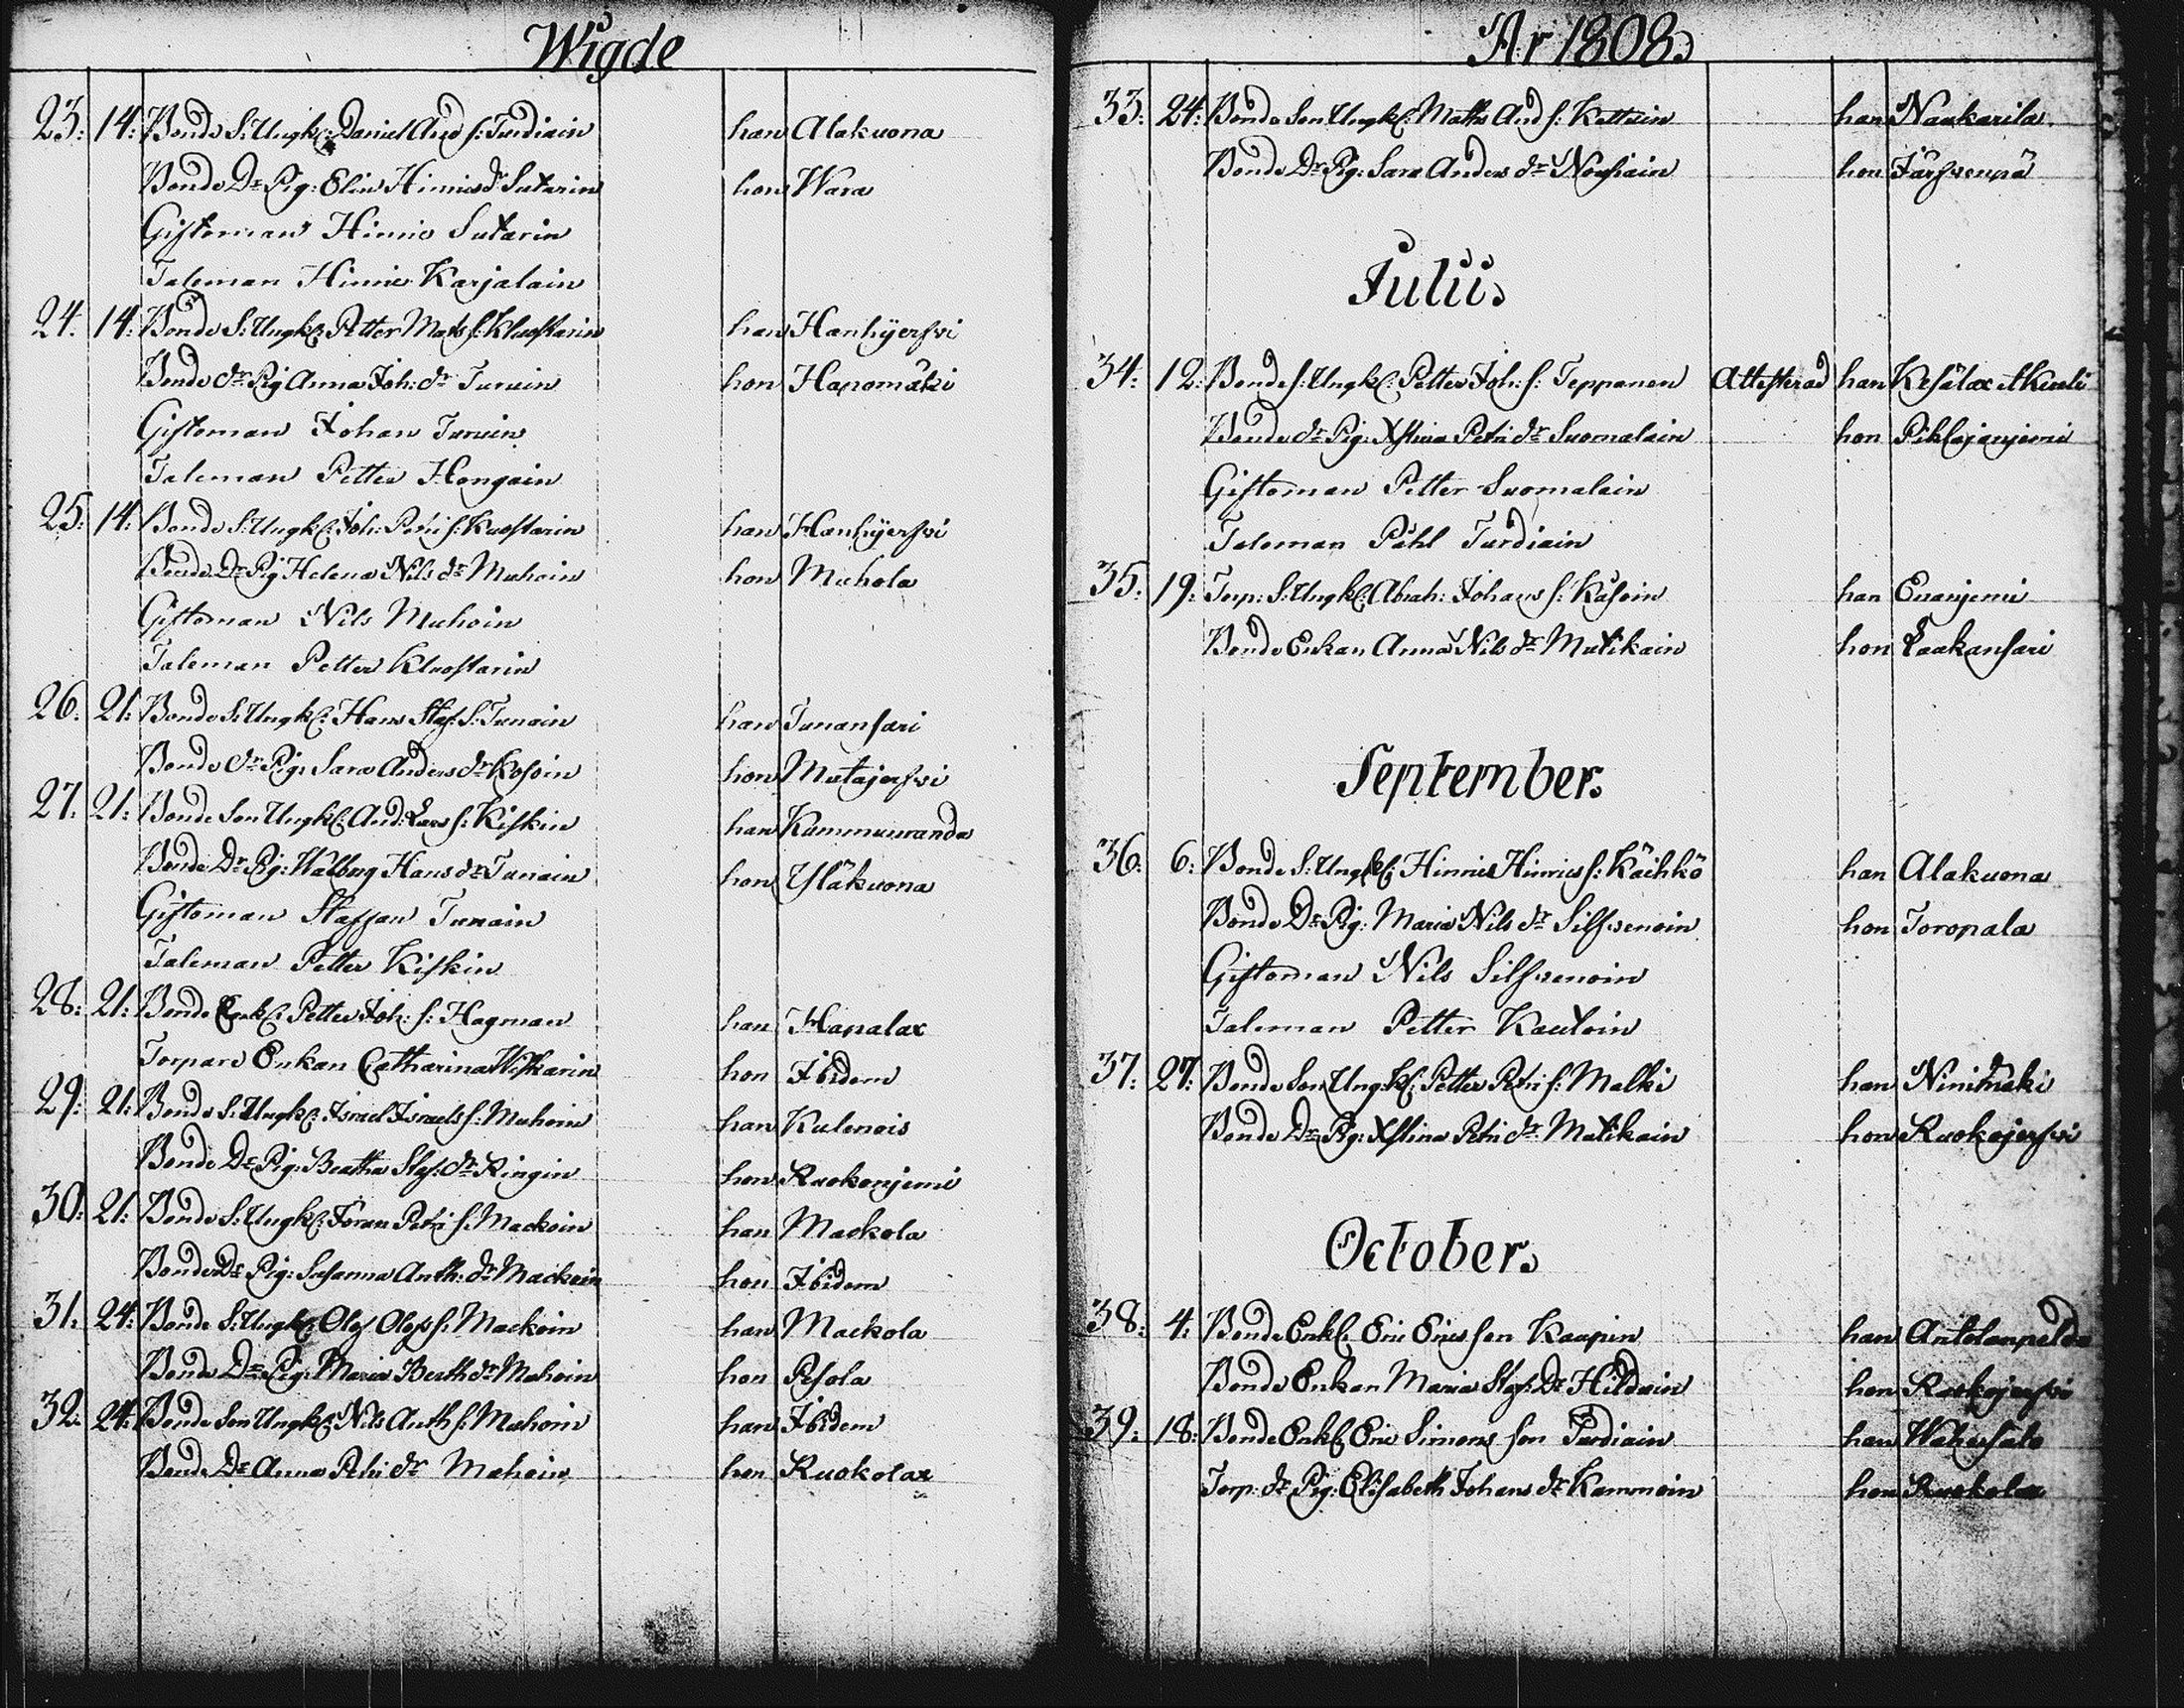 Wigde
23: 14: Bonde S: Ungk: Daniel And s: Turdiain han Alakuona
Bonde Dr Pig: Elin Hinrics dr Sutarin hon Wara
Giftoman Hinric Sutarin
Taleman Hinric Karjalain
24: 14: Bonde S: Ungk: Petter Mats s: Kluostarin han Hanhijerfvi
Bonde dr Pig Anna Joh: dr Turuin hon Hapomäki
Giftoman Johan Turuin
Taleman Petter Hongain
25: 14: Bonde S: Ungk: Joh: Petri s: Kuostarin han Hanhijerfvi
Bonde Dr Pig Helena Nils dr Muhoin hon Muhola
Giftoman Nils Muhoin
Taleman Petter Kluostarin
26: 21: Bonde S: Ungk: Hans Staf: S: Tunain han Tunansari
Bonde dr Pig: Sara Anders dr Kosoin hon Mutajerfvi
27: 21: Bonde Son Ungk: And: Lars s: Kiskin han Kummunranda
Bonde Dr Pig: Walborg Hans dr Tunain hon Yläkuona
Giftoman Staffan Tunain
Taleman Petter Kiskin
28: 21: Bonde Enkl: Petter Joh: s: Hagman han Hapalax
Torpare Enkan Catharina Wiskarin hon Ibidem
29: 21: Bonde S: Ungk: Israel Israels s: Muhoin han Kulenois
Bonde Dr Pig: Beatha Staf: dr Ringin hon Ruokonjemi
30: 21: Bonde S: Ungk: Joran Petri s: Mackoin han Mackola
Bonde Dr Pig: Susanna Anth: dr Mackoin hon Ibidem
31: 24: Bonde S: Ungk: Olof Olofs s: Mackoin han Mackola
Bonde Dr Pig: Maria Berth dr Muhoin hon Pesola
32: 24: Bonde Son Ungk: Nils Anth s: Muhoin han Ibidem
Bonde Dr Anna Petri dr Mahoin hon Ruokolax
År 1808.
33: 24: Bonde Son Ungk: Maths And s: Kettuin han Naukarila
Bonde Dr Pig: Sara Anders dr Nousiain hon Järfvenpä
Julii.
34: 12: Bonde s: Ungk: Petter Joh: s: Teppanen Attesterad han Kesälax et Kiteli
Bonde dr Pig: Xstina Petri dr Suomalain hon Pihlajanjemi
Giftoman Petter Suomalain
Taleman Påhl Turdiain
35: 19: Torp: S: Ungk: Abrah: Johans s: Käsoin han Enanjemi
Bonde Enkan Anna Nils dr Mutikain hon Laukansari
September.
36: 6: Bonde S: Ungk: Hinric Hinrics s: Käihkö han Alakuona
Bonde Dr Pig: Maria Nils dr Silfvenoin hon Toropala
Giftoman Nils Silfvenoin
Taleman Petter Kautoin
37: 27: Bonde Son Ungk: Petter Petri s: Malki han Ninimäki
Bonde Dr Pig: Xstina Petri dr Mutikain hon Ruokojerfvi
October.
38: 4: Bonde Enkl Eric Erics son Kaapin han Antolanpeldo
Bonde Enkan Maria Staf: Dr Hilduin hon Ruokojerfvi
39: 18: Bonde Enkl Eric Simons son Turdiain han
Torp: dr Pig: Elisabeth Johans dr Kammoin hon Ruokolax